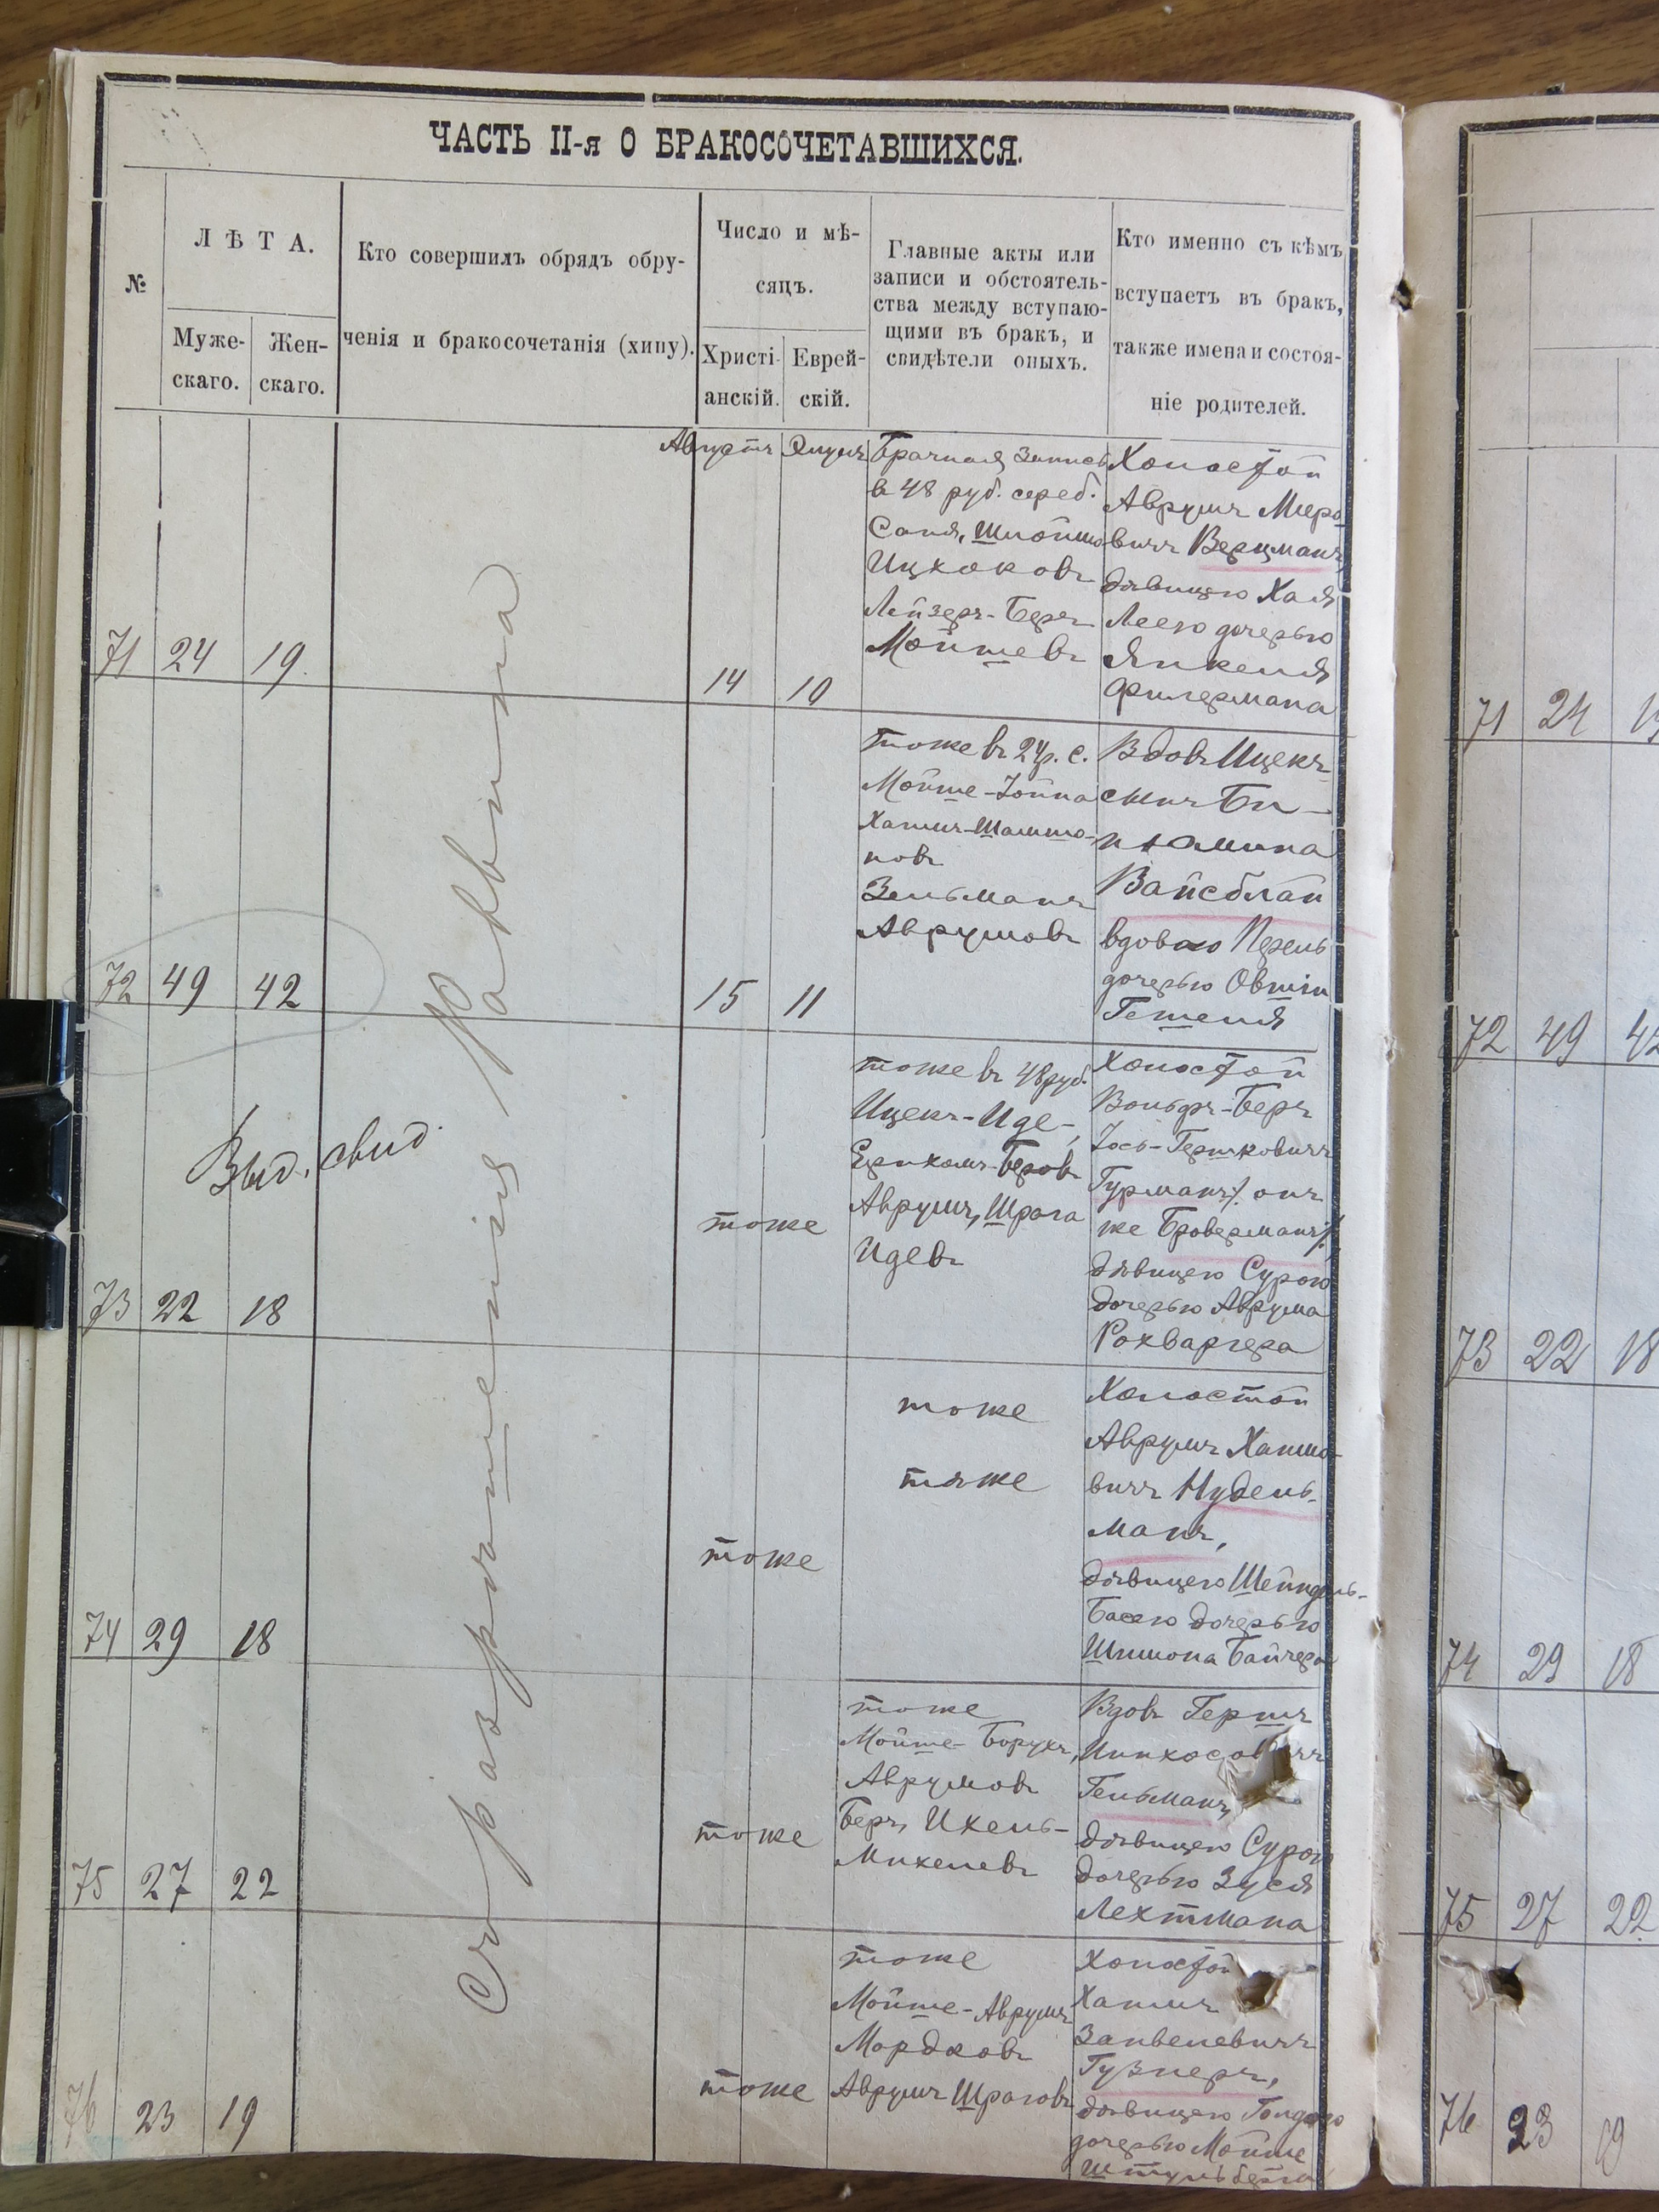 ЧАСТЬ II-я О БРАКОСОЧЕТАВШИХСЯ.
№
ЛѢТА.
Муже-
скаго.
Жен-
скаго.
Кто совершилъ обрядъ обру-
ченія и бракосочетанія (хипу).
Число и мѣ-
сяцъ.
Христі-
анскій.
Еврей-
скій.
Главные акты или
записи и обстоятель-
ства между вступаю-
щими въ бракъ, и
свидѣтели оныхъ.
Кто именно съ кѣмъ
вступаетъ въ бракъ,
также имена и состоя-
ніе родителей.
Съ разрѣшенія Раввина
71
24
19.
Августъ
14
10
Брачная запись
в 48 руб. сереб.
Ицхоковъ
Лейзеръ-Беръ
Мойшевъ
Холостой
Аврумъ Меро
вичъ Верцманъ,
дѣвицею Хая
Леею дочерью
Янкеля
Филермана
72
49
42
15
11
тоже въ 24 р. с.
Мойше-Іойна
Хаимъ-Шаимо-
новъ
Зельманъ
Аврумовъ
Вдовъ Ицекъ
сынъ Би-
ньомина
Вайсблай
вдовою Перель
дочерью Овшіи
Гешеля
Выд. свид.
73
22
18
тоже
тоже въ 48 руб.
Ицекъ-Иде-
Аврумъ, Шрага
Идевъ
Холостой
Вольфъ-Беръ
Іось-Гершковичъ
Гурманъ /. онъ
же Броверманъ /.
дѣвицею Сурою
дочерью Аврума
Рохваргера
74
29
18
тоже
тоже
тоже
Холостой
Аврумъ Хаимо-
вичъ Нудель-
манъ,
дѣвицею Шейндель-
Басею дочерью
Шимона Байчера
75
27
22
тоже
тоже
Мойше-Борухъ,
Аврумовъ
Беръ, Ихель-
Михелевъ
Вдовъ Гершъ
Гельманъ,
дѣвицею Сурою
дочерью Зуся
Лехтмана
76
23
19
тоже
тоже
Мойше-Аврумъ
Мордковъ
Аврумъ Шраговъ
Холостой
Хаимъ
Занвелевичъ
Гузнеръ,
дѣвицею Голдою
дочерью Мойше
Штульберга
71
24
72
49
42
73
22
18
74
29
18
75
27
22
76
23
19